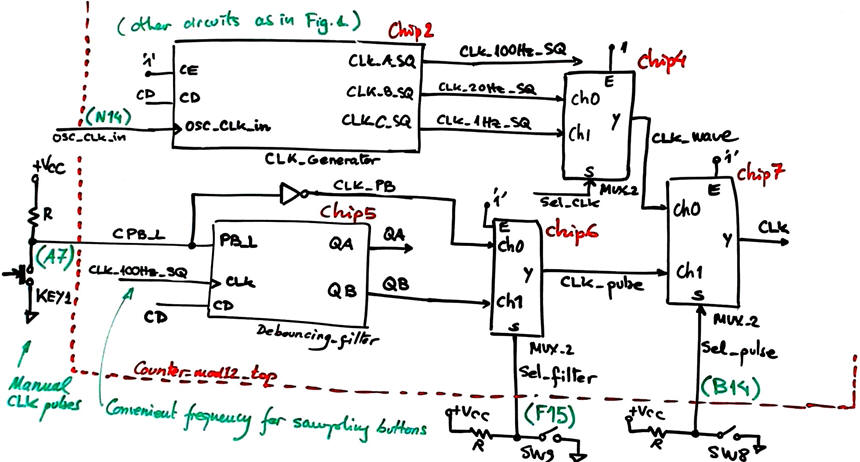 (other circuits as in Fig. 1)
Chip2
'1'
CE
CD
CD
(N14)
OSC_CLK_in
OSC_CLK_in
CLK_A_SQ
CLK_B_SQ
CLK_C_SQ
CLK_Generator
CLK_100Hz_SQ
CLK_20Hz_SQ
CLK_1Hz_SQ
1
Chip4
E
Ch0
Ch1
Y
S
MUX_2
Sel_CLK
CLK_wave
'1'
Chip7
E
Ch0
Y
CLK
Ch1
S
MUX_2
+Vcc
R
CPB_L
(A7)
KEY1
CLK_PB
Chip5
PB_L
QA
QA
CLK_100Hz_SQ
CLK
QB
QB
CD
CD
Debouncing_filter
'1'
E
Chip6
Ch0
Y
Ch1
S
MUX_2
CLK_pulse
Sel_filter
Sel_pulse
Counter_mod12_top
Manual
CLK pulses
Convenient frequency for sampling buttons
(F15)
(B14)
+Vcc
R
SW9
+Vcc
R
SW8